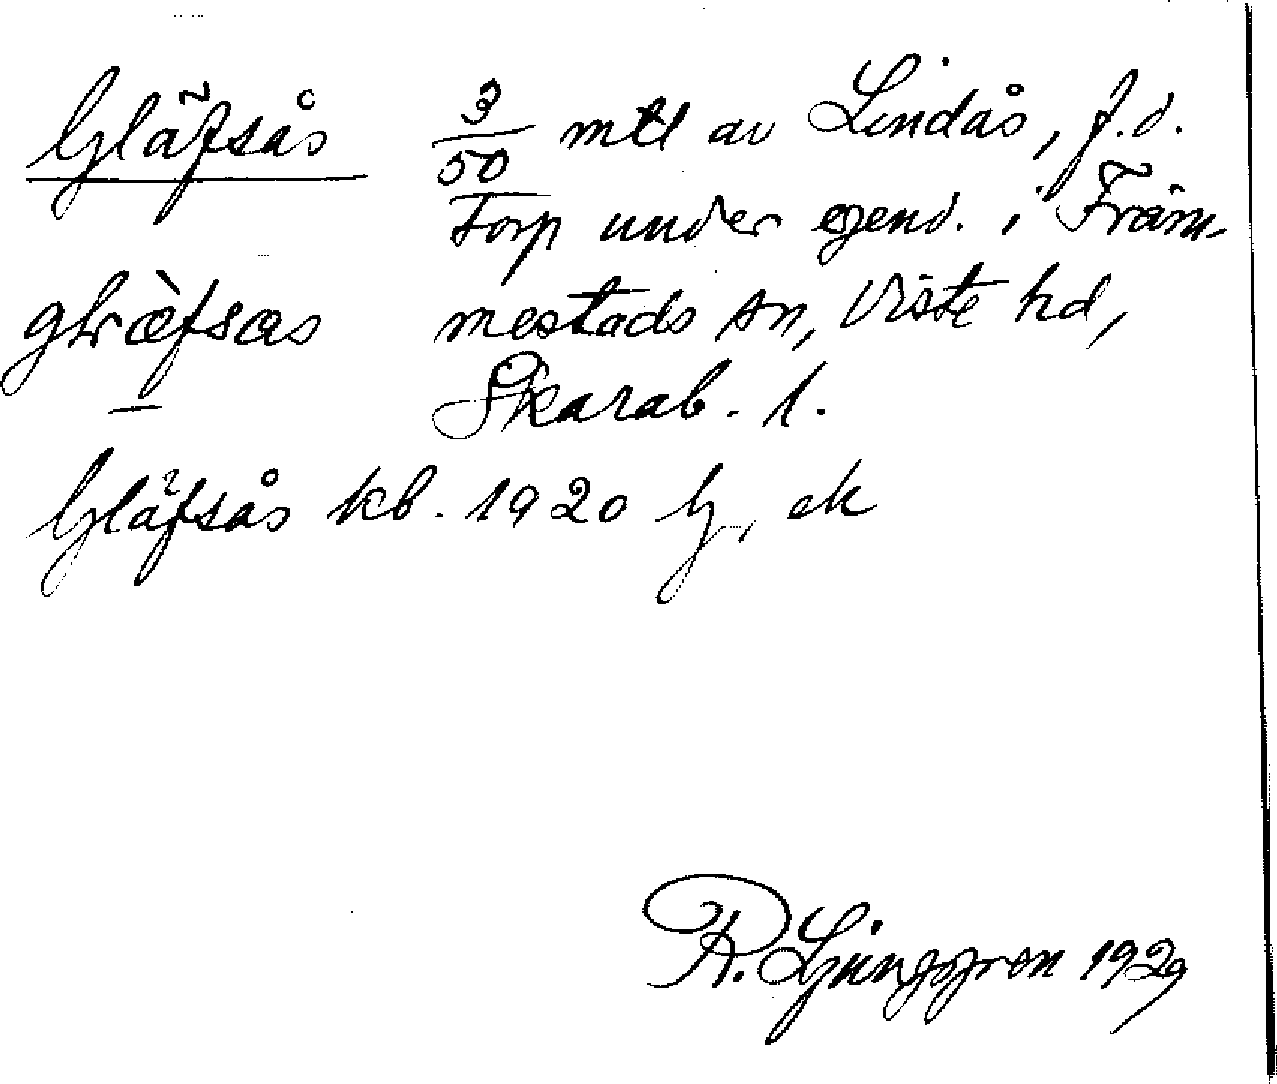 Gläfsås 3/50 mtl av Lindås, f.d.
Torp under egend. i Främ-
mestads sn, Viste hd,
Skarab. l.
Gläfsås kb. 1920 G, ek
R. Ljunggren 1929